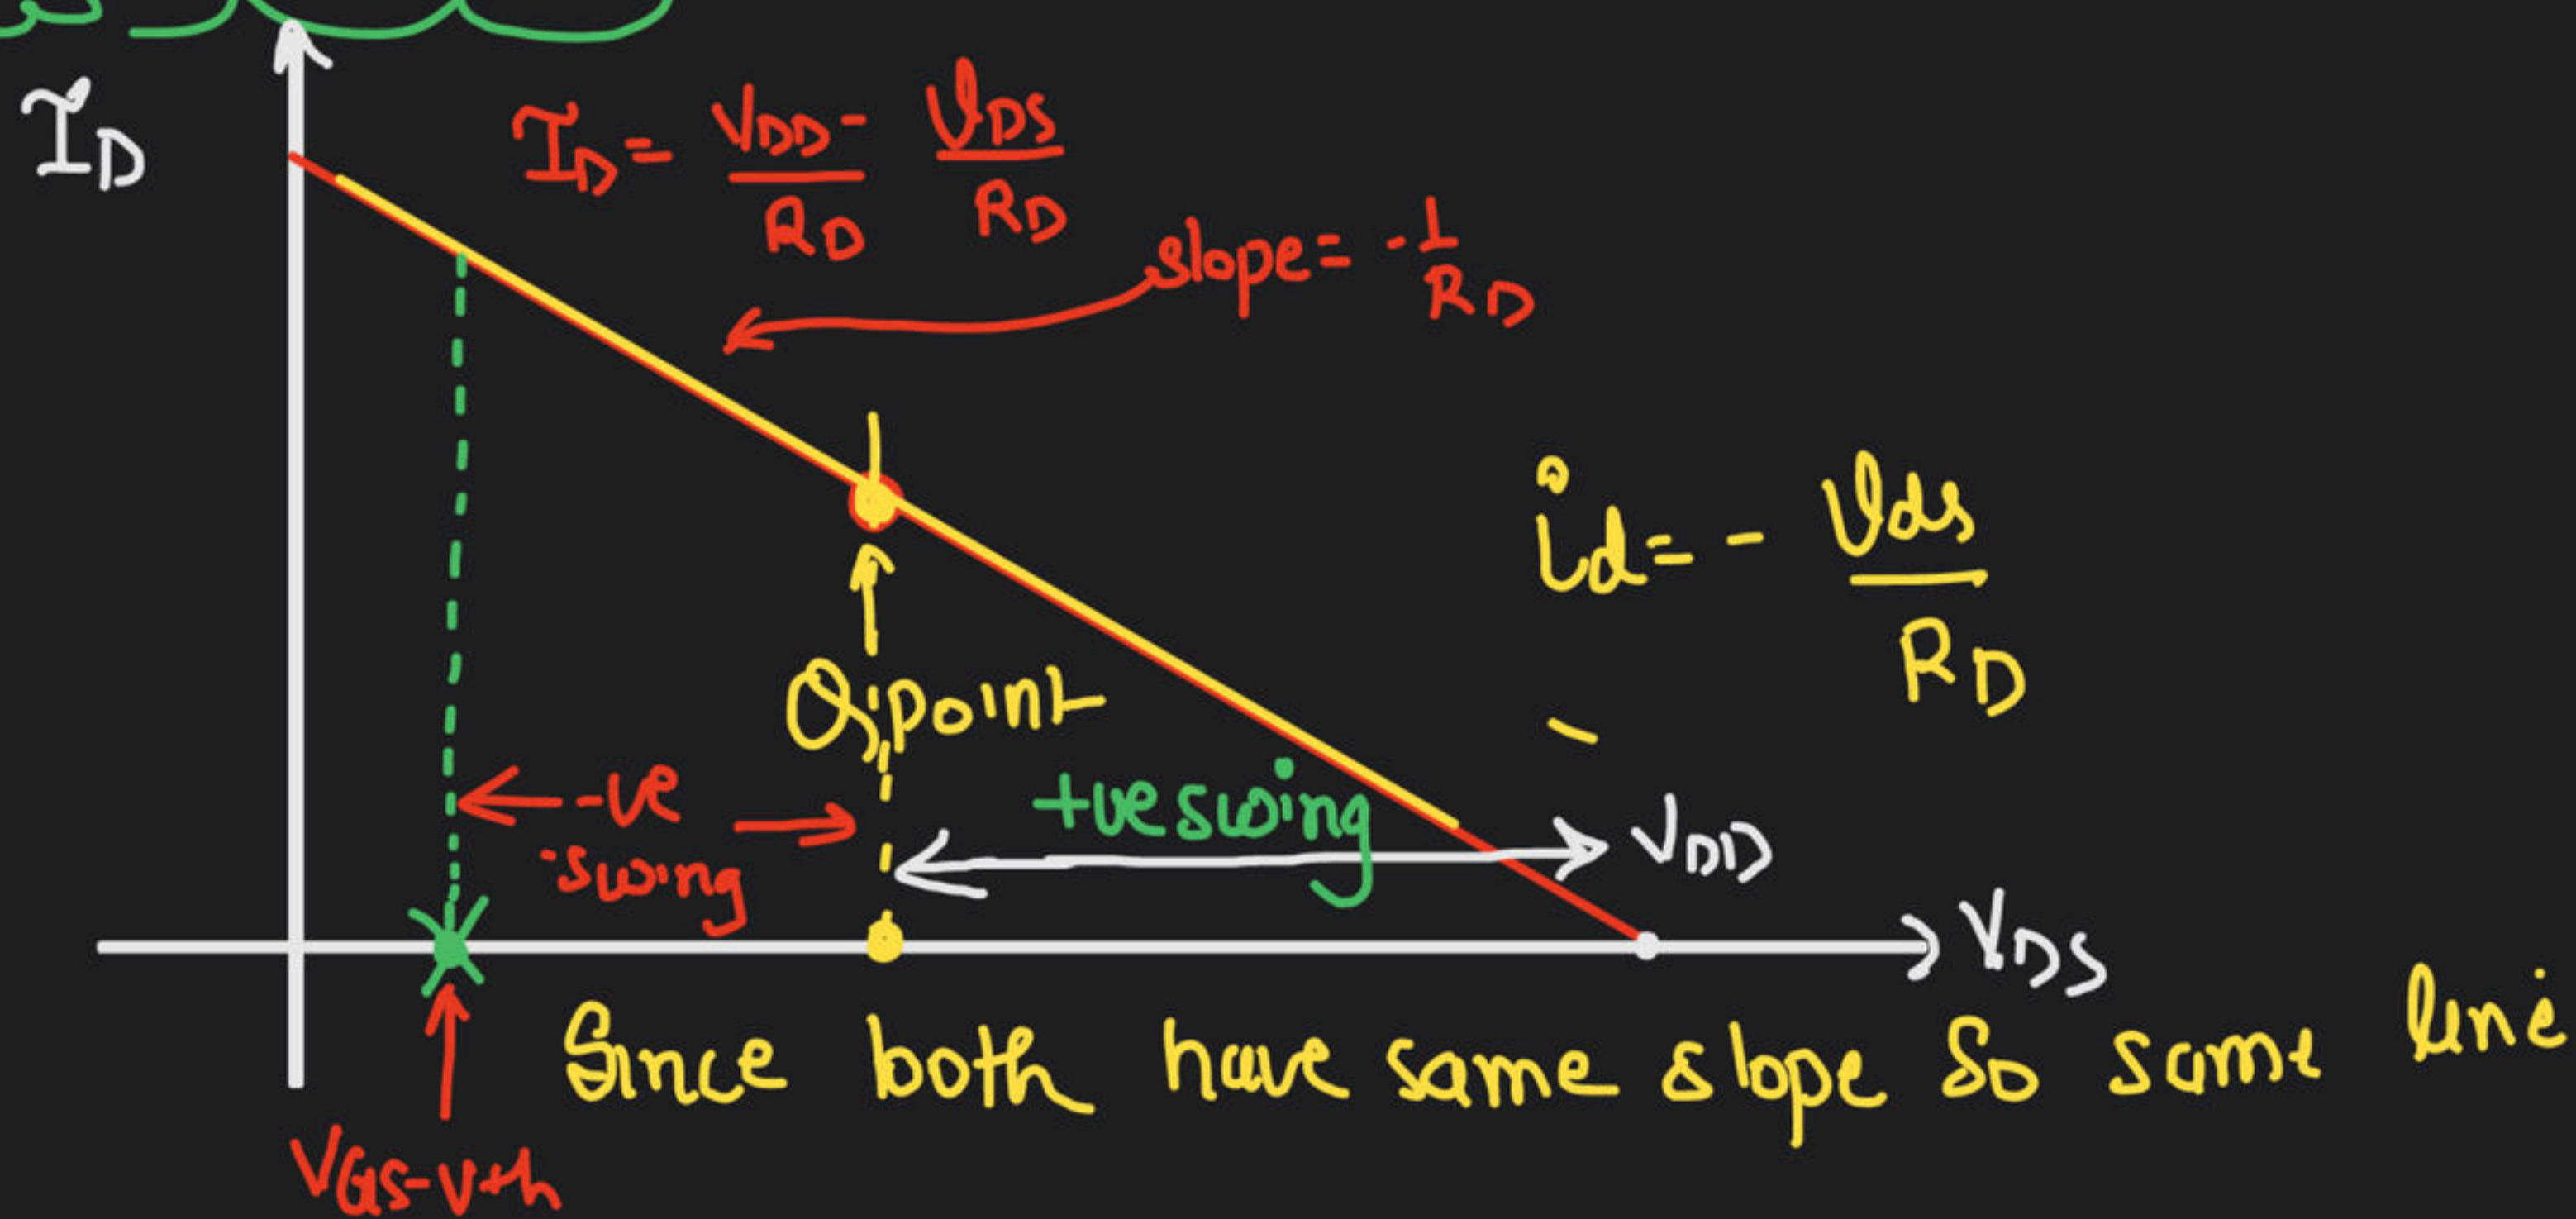 I_D
I_D = V_DD/R_D - V_DS/R_D
slope = -1/R_D
i_d = - V_ds/R_D
Q,point
-ve
swing
+ve swing
V_DD
V_DS
Since both have same slope So same line
V_GS-Vth